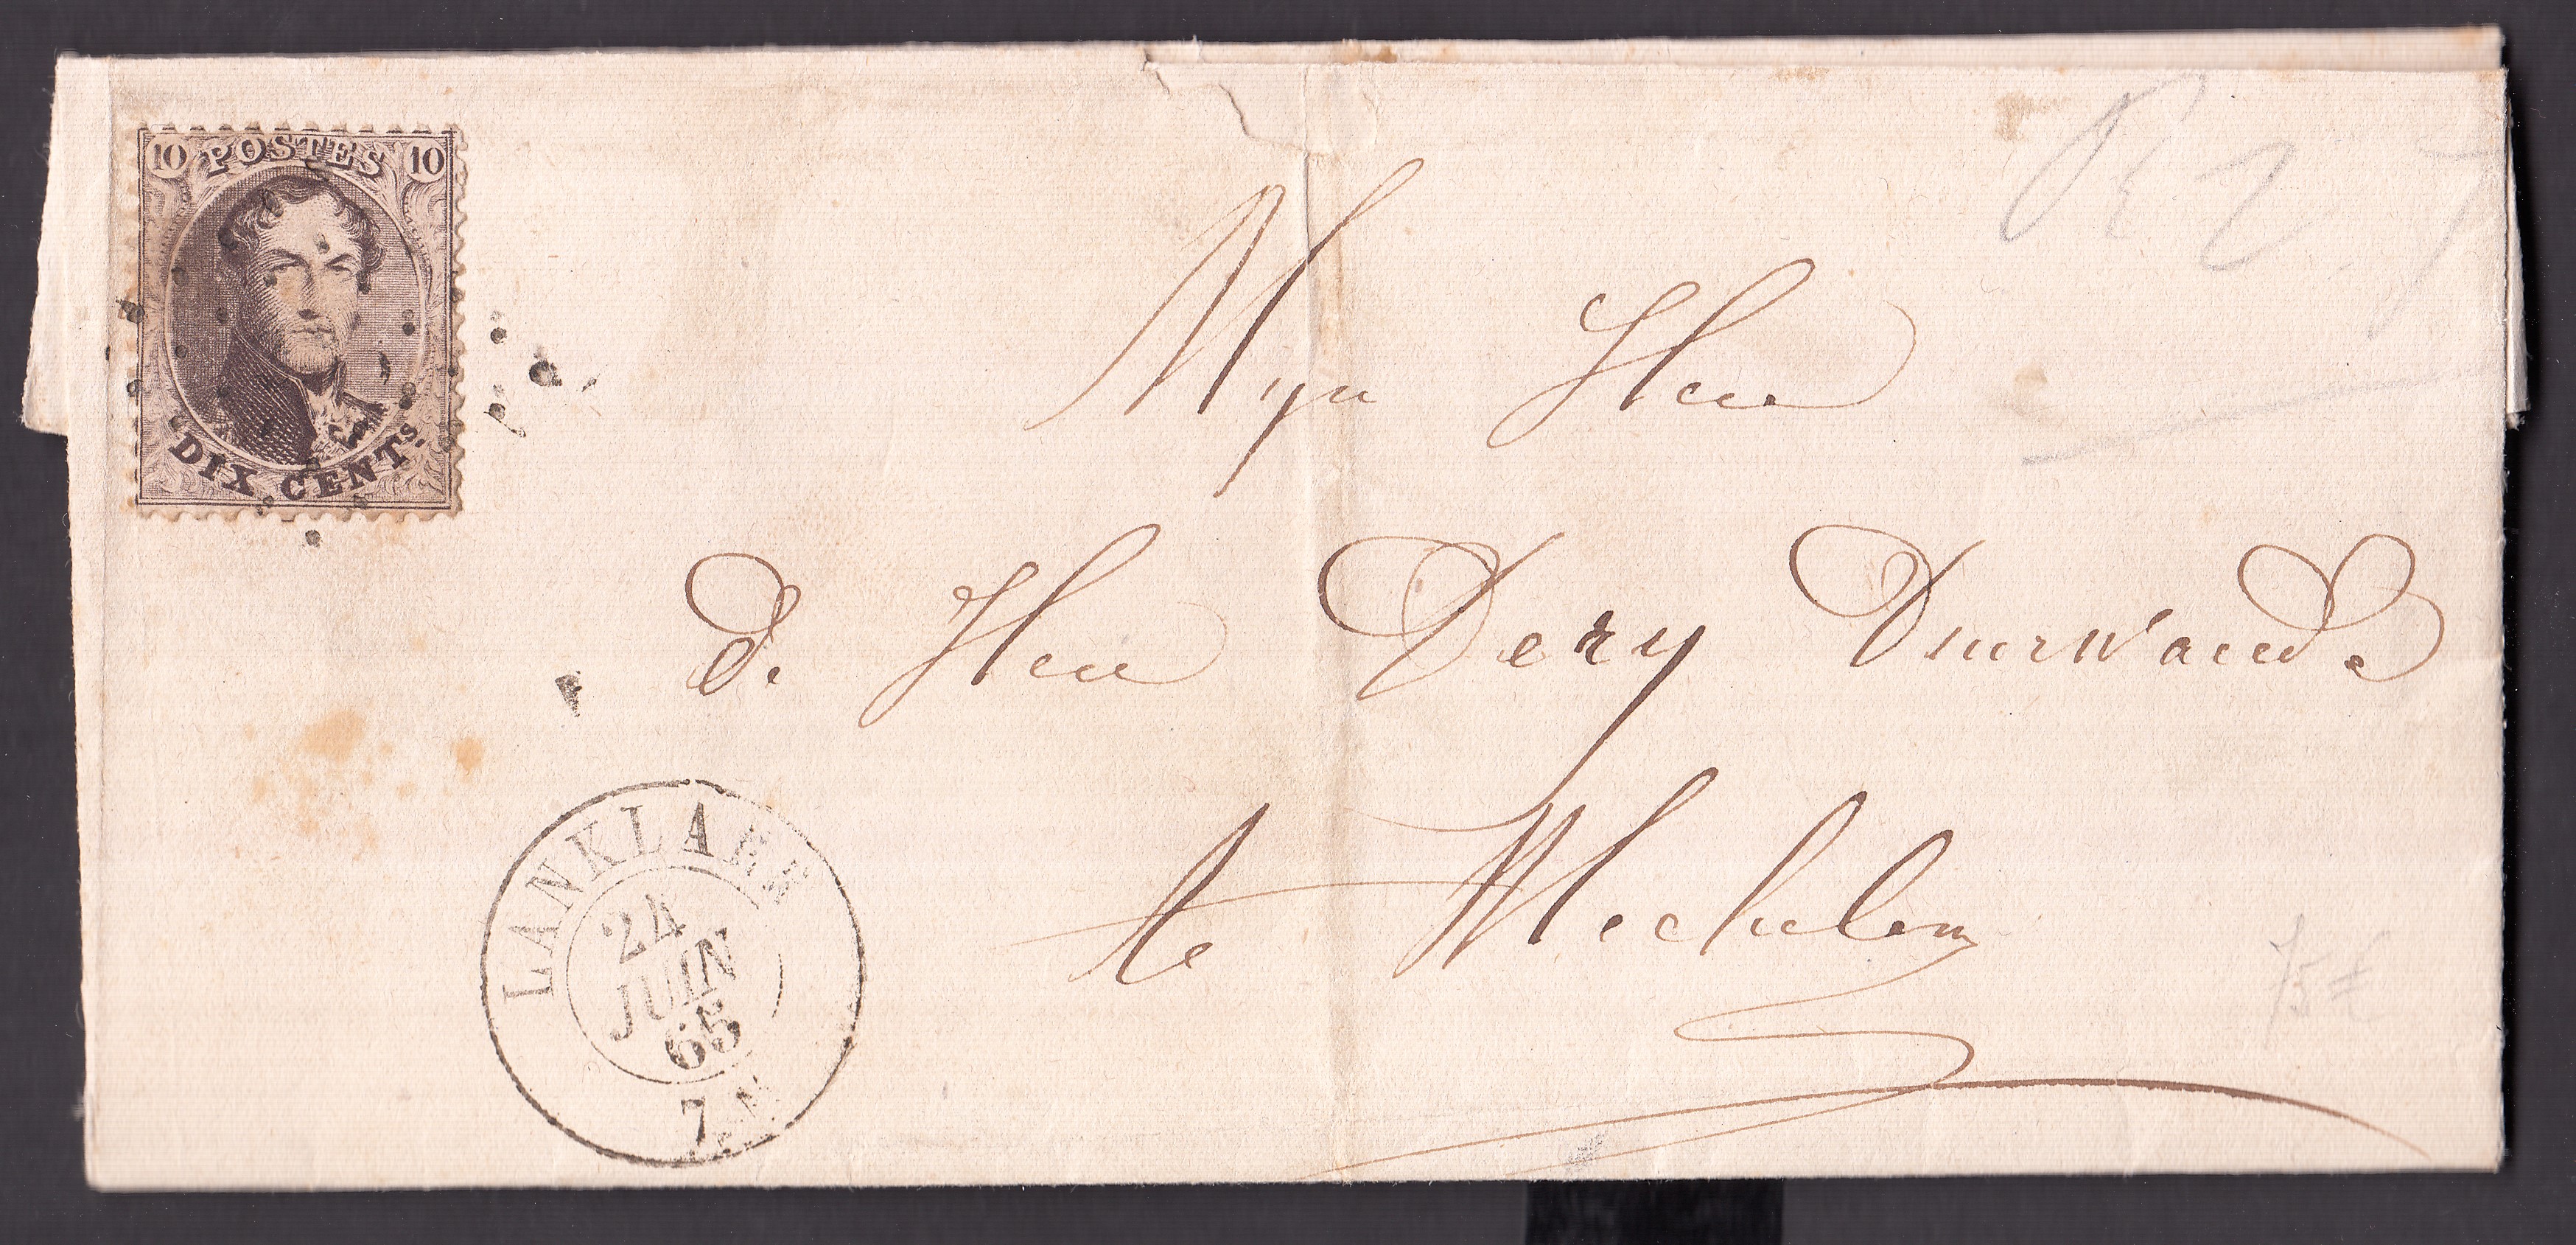 10 POSTES 10
DIX CENTS.
Myn Heer
de Heer Dery Deurwaerder
te Mechelen
LANKLAER
24
JUIN
65
7 M
75 €